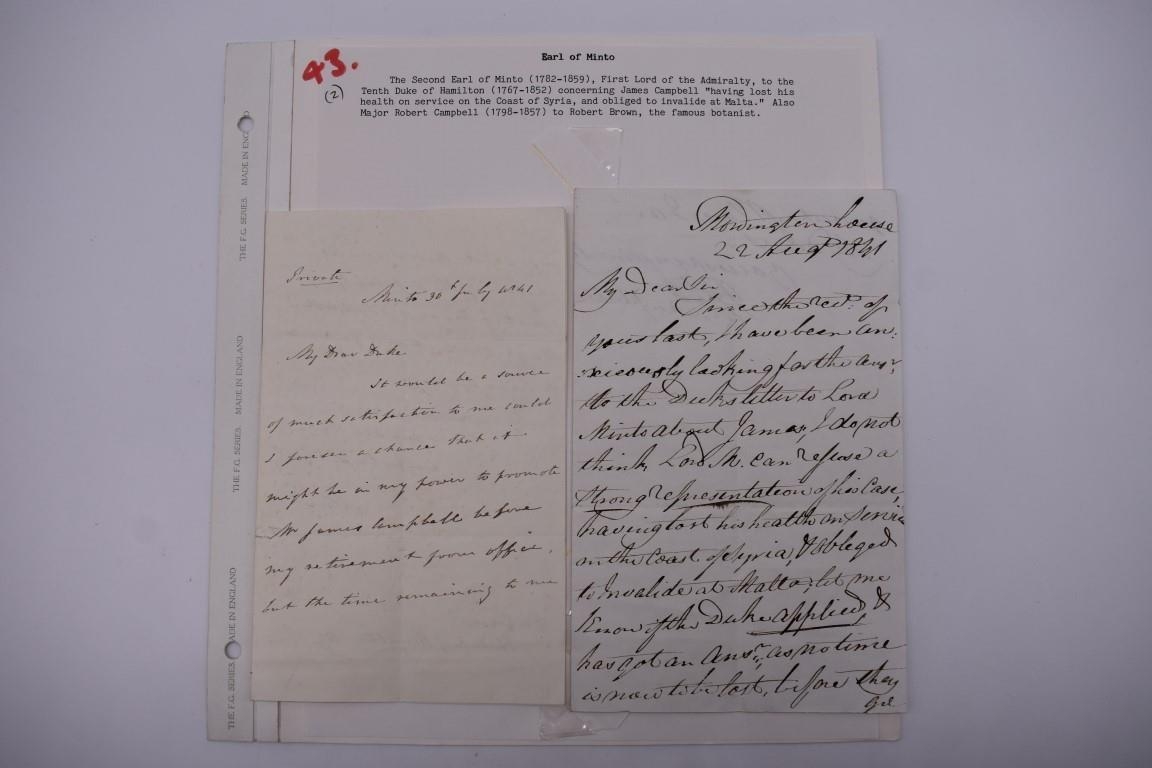 43.
(2)
Earl of Minto
The Second Earl of Minto (1782-1859), First Lord of the Admiralty, to the
Tenth Duke of Hamilton (1767-1852) concerning James Campbell "having lost his
health on service on the Coast of Syria, and obliged to invalide at Malta." Also
Major Robert Campbell (1798-1857) to Robert Brown, the famous botanist.
THE F.G. SERIES MADE IN ENGLAND
THE F.G. SERIES MADE IN ENGLAND
THE F.G. SERIES MADE IN ENGLAND
Private
Minto 30th July 1841
My Dear Duke
It would be a source
of much satisfaction to me could
I foresee a chance that it
might be in my power to promote
Mr James Campbell before
my retirement from office,
but the time remaining to me
Mordington house
22 Augt 1841
My Dear Sir
Since the rct. of
yours last, I have been an:
:xiously looking for the ansr
to the Dukes letter to Lord
Minto about James, I do not
think Lord M. can refuse a
strong representation of his Case,
having lost his health on Service
on the Coast of Syria, & obleged
to Invalide at Malta; let me
know if the Duke applied, &
has got an Ansr., as no time
is now to be lost, before they